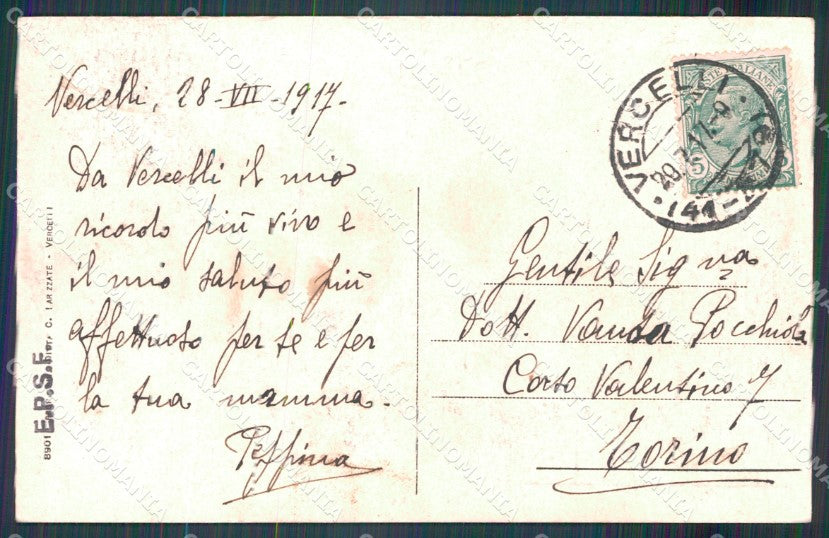 Vercelli, 28-VII-1917-
Da Vercelli il mio
ricordo più vivo e
il mio saluto più
affettuoso per te e per
la tua mamma.
Peppina
Gentile Signa
Dott. Vanda Pocchiola
Corso Valentino 7
Torino
VERCELLI
E.P.S.F.
8901
C. TARIZZATE - VERCELLI
CARTOLINOMANIA